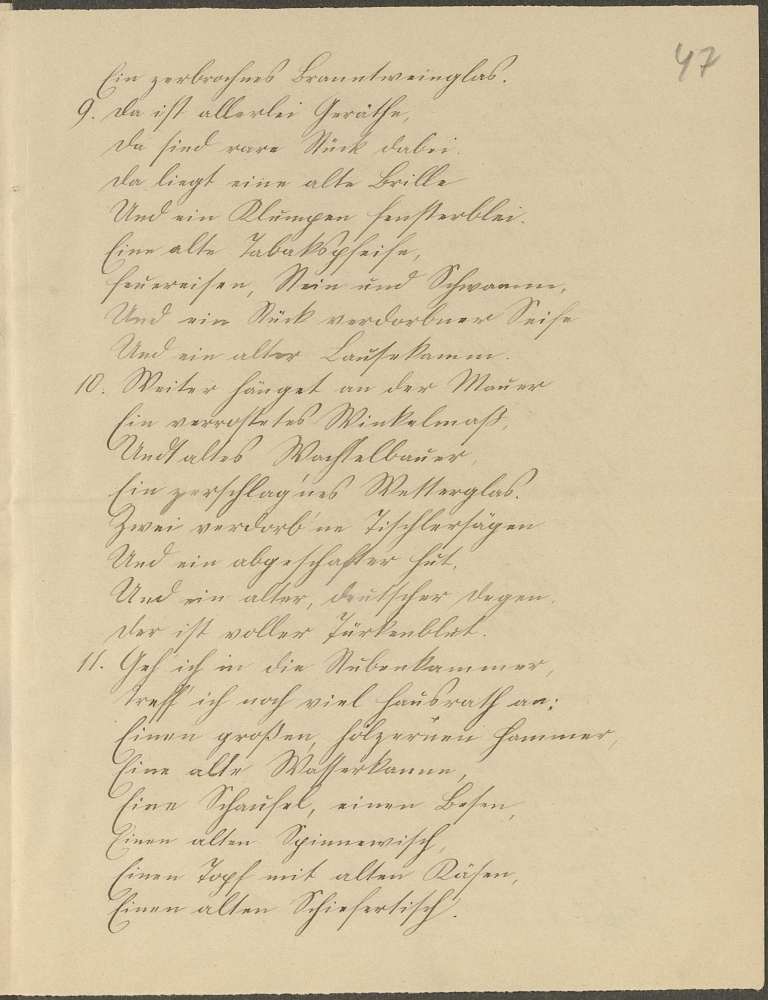 47
Ein zerbrochnes Branntweinglas.
9. Da ist allerlei Geräthe,
Da sind rare Stück dabei.
Da liegt eine alte Brille
Und ein Klumpen Fensterblei.
Eine alte Tabakspfeife,
Feuereisen, Stein und Schwamm,
Und ein Stück verdorbner Seife
Und ein alter Lausekamm.
10. Weiter hänget an der Mauer
Ein verrostetes Winkelmaß,
Und altes Wachtelbauer,
Ein zerschlag'nes Wetterglas.
Zwei verdorb'ne Tischlersägen
Und ein abgeschabter Hut,
Und ein alter, deutscher Degen,
Der ist voller Türkenblut.
11. Geh' ich in die Stubenkammer,
Treff' ich noch viel Hausrath an:
Einen großen, hölzernen Hammer,
Eine alte Wasserkanne,
Eine Schaufel, einen Besen,
Einen alten Spinnewisch,
Einen Topf mit alten Käsen,
Einen alten Schiefertisch.